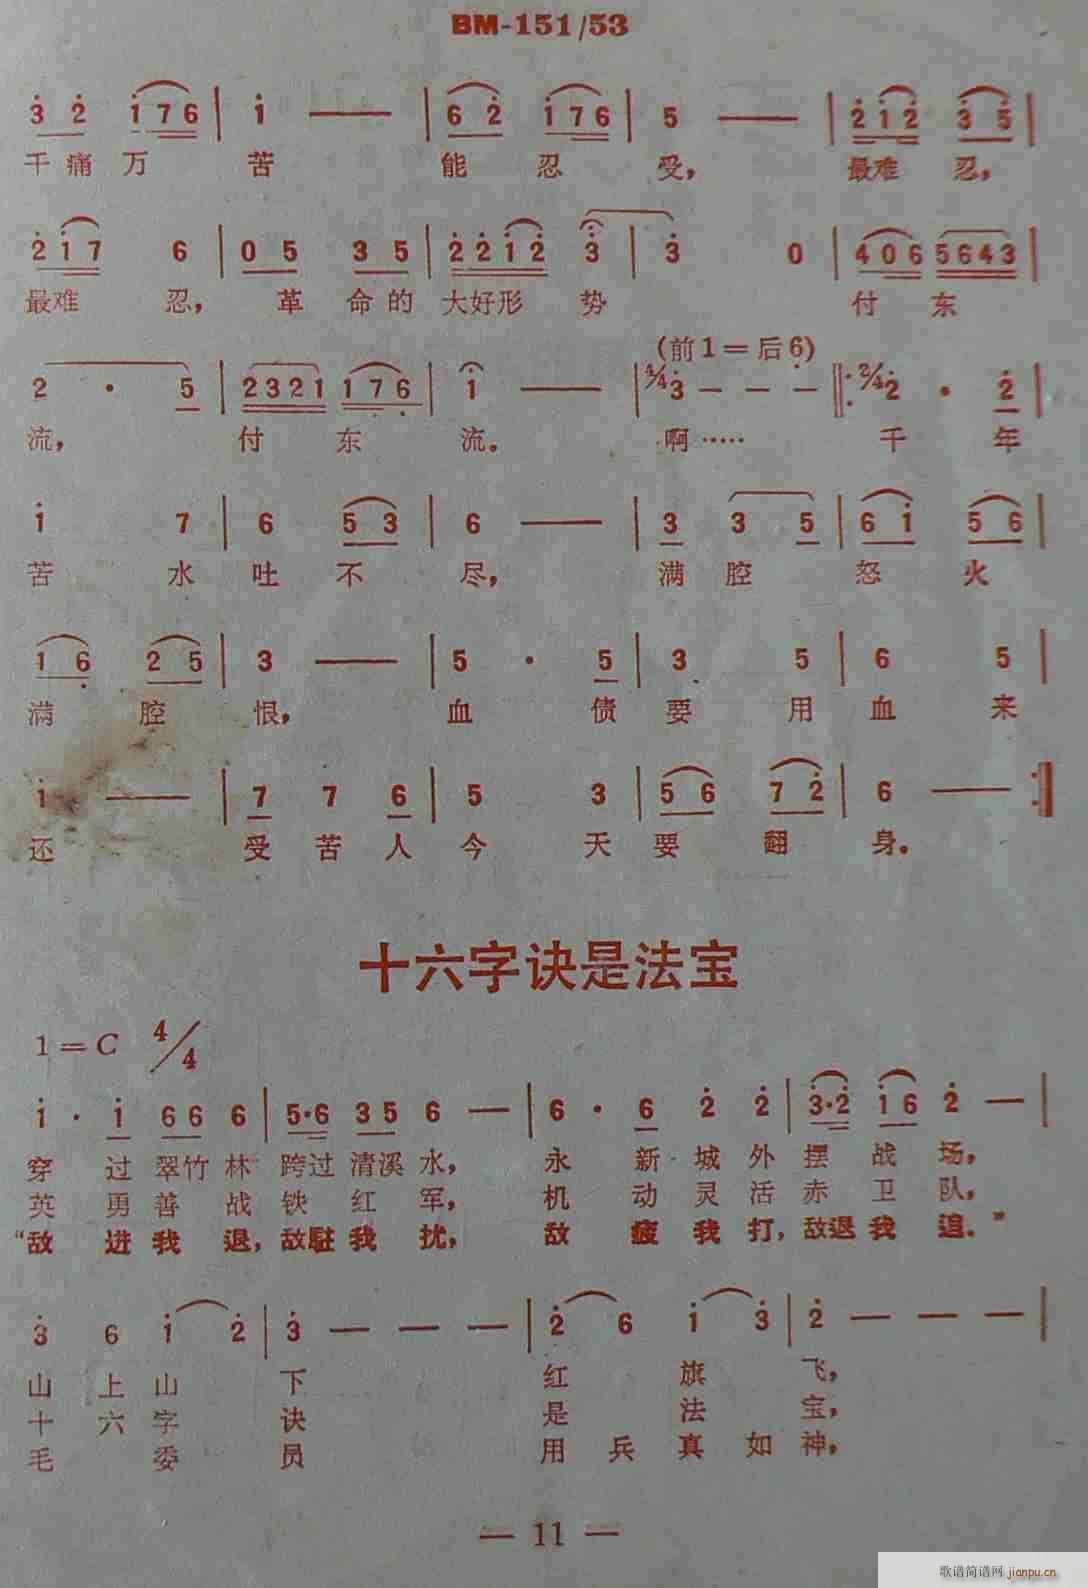 BM-151/53
3 2 1 7 6 | 1 — | 6 2 1 7 6 | 5 — | 2 1 2 3 5 |
千痛万 苦 能 忍 受， 最难 忍，
2 1 7 6 | 0 5 3 5 | 2 2 1 2 3 | 3 0 | 4 0 6 5 6 4 3 |
最难 忍， 革 命的 大好形 势 付 东
(前1＝后6)
2 · 5 | 2 3 2 1 1 7 6 | 1 — | 4/4 3 — — — ‖: 2/4 2 · 2 |
流， 付 东 流。 啊…… 千 年
1 7 | 6 5 3 | 6 — | 3 3 5 | 6 1 5 6 |
苦 水 吐 不 尽， 满 腔 怒 火
1 6 2 5 | 3 — | 5 · 5 | 3 5 | 6 5 |
满 腔 恨， 血 债 要 用 血 来
1 — | 7 7 6 | 5 3 | 5 6 7 2 | 6 — :‖
还 受 苦 人 今 天 要 翻 身。
十六字诀是法宝
1＝C 4/4
1 · 1 6 6 6 | 5·6 3 5 6 — | 6 · 6 2 2 | 3·2 1 6 2 — |
穿 过 翠竹 林 跨过 清溪 水， 永 新 城 外 摆 战 场，
英 勇 善 战 铁 红 军， 机 动 灵 活 赤 卫 队，
“敌 进 我 退，敌驻 我 扰， 敌 疲 我 打，敌退 我 追。”
3 6 1 2 | 3 — — — | 2 6 1 3 | 2 — — — |
山 上 山 下 红 旗 飞，
十 六 字 诀 是 法 宝，
毛 委 员 用 兵 真 如 神，
— 11 —
歌谱简谱网 jianpu.cn